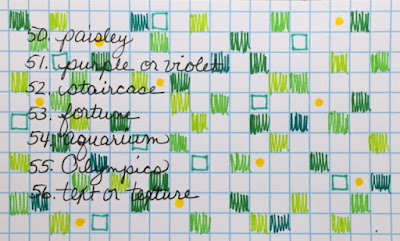 50. paisley
51. purple or violet
52. staircase
53. fortune
54. aquarium
55. Olympics
56. text or texture